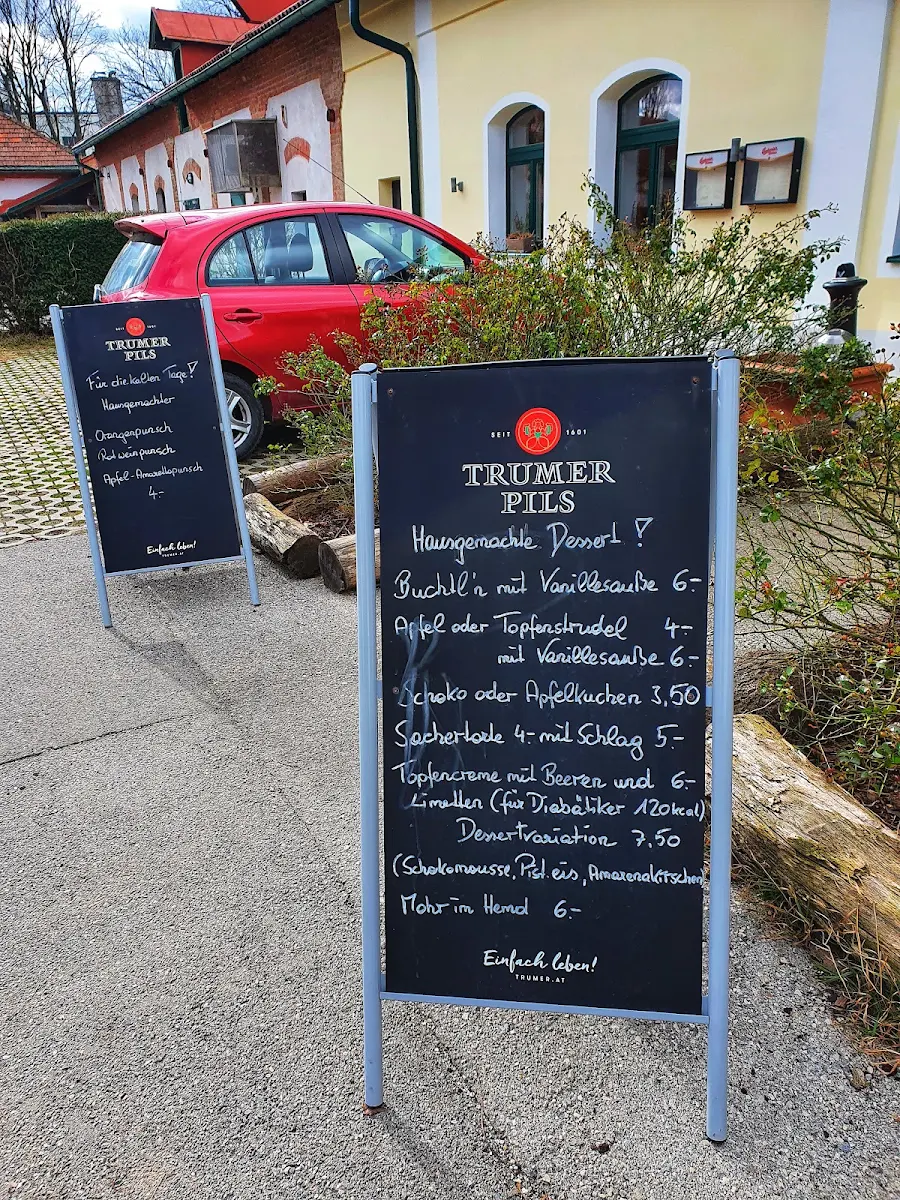 SEIT 1601
TRUMER
PILS
Für die kalten Tage!
Hausgemachter
Orangenpunsch
Rotweinpunsch
Apfel-Amarettopunsch
4.-
Einfach leben!
TRUMER.AT
SEIT 1601
TRUMER
PILS
Hausgemachte Dessert !
Buchtl'n mit Vanillesauße 6.-
Apfel oder Topfenstrudel 4.-
mit Vanillesauße 6.-
Schoko oder Apfelkuchen 3,50
Sachertorte 4.- mit Schlag 5.-
Topfencreme mit Beeren und 6.-
Limetten (für Diabätiker 120kcal)
Dessertvariation 7,50
(Schokomousse, Pist.eis, Amarenakirschen)
Mohr im Hemd 6.-
Einfach leben!
TRUMER.AT